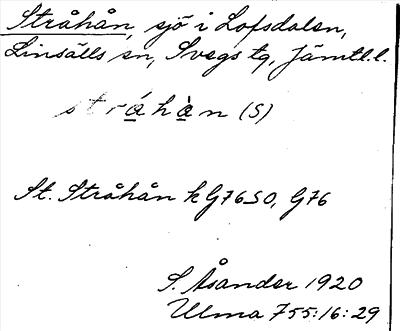 Stråhån, sjö i Lofsdalen,
Linsälls sn, Svegs tg, Jämtl. l.
stráhàn (S)
St. Stråhån k G76SO, G76
S. Åsander 1920
Ulma 755:16:29